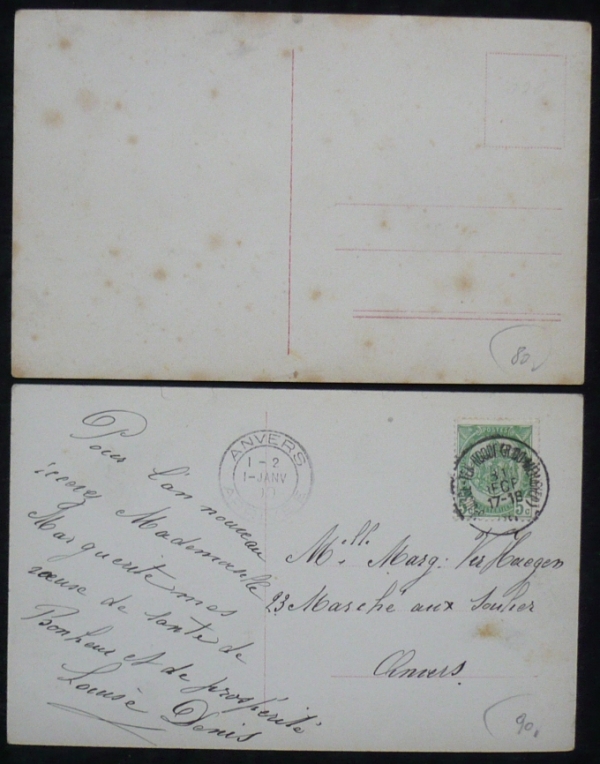 80,
Pour l'an nouveau
recevez Mademoiselle
Marguerite mes
vœux de santé de
Bonheur et de prospérité
Louise Denis
ANVERS
1-2
1-JANV
10
5c
31
DECE
17-18
Mlle. Marg: Ver Haegen
23 Marché aux Souliers
Anvers.
90,